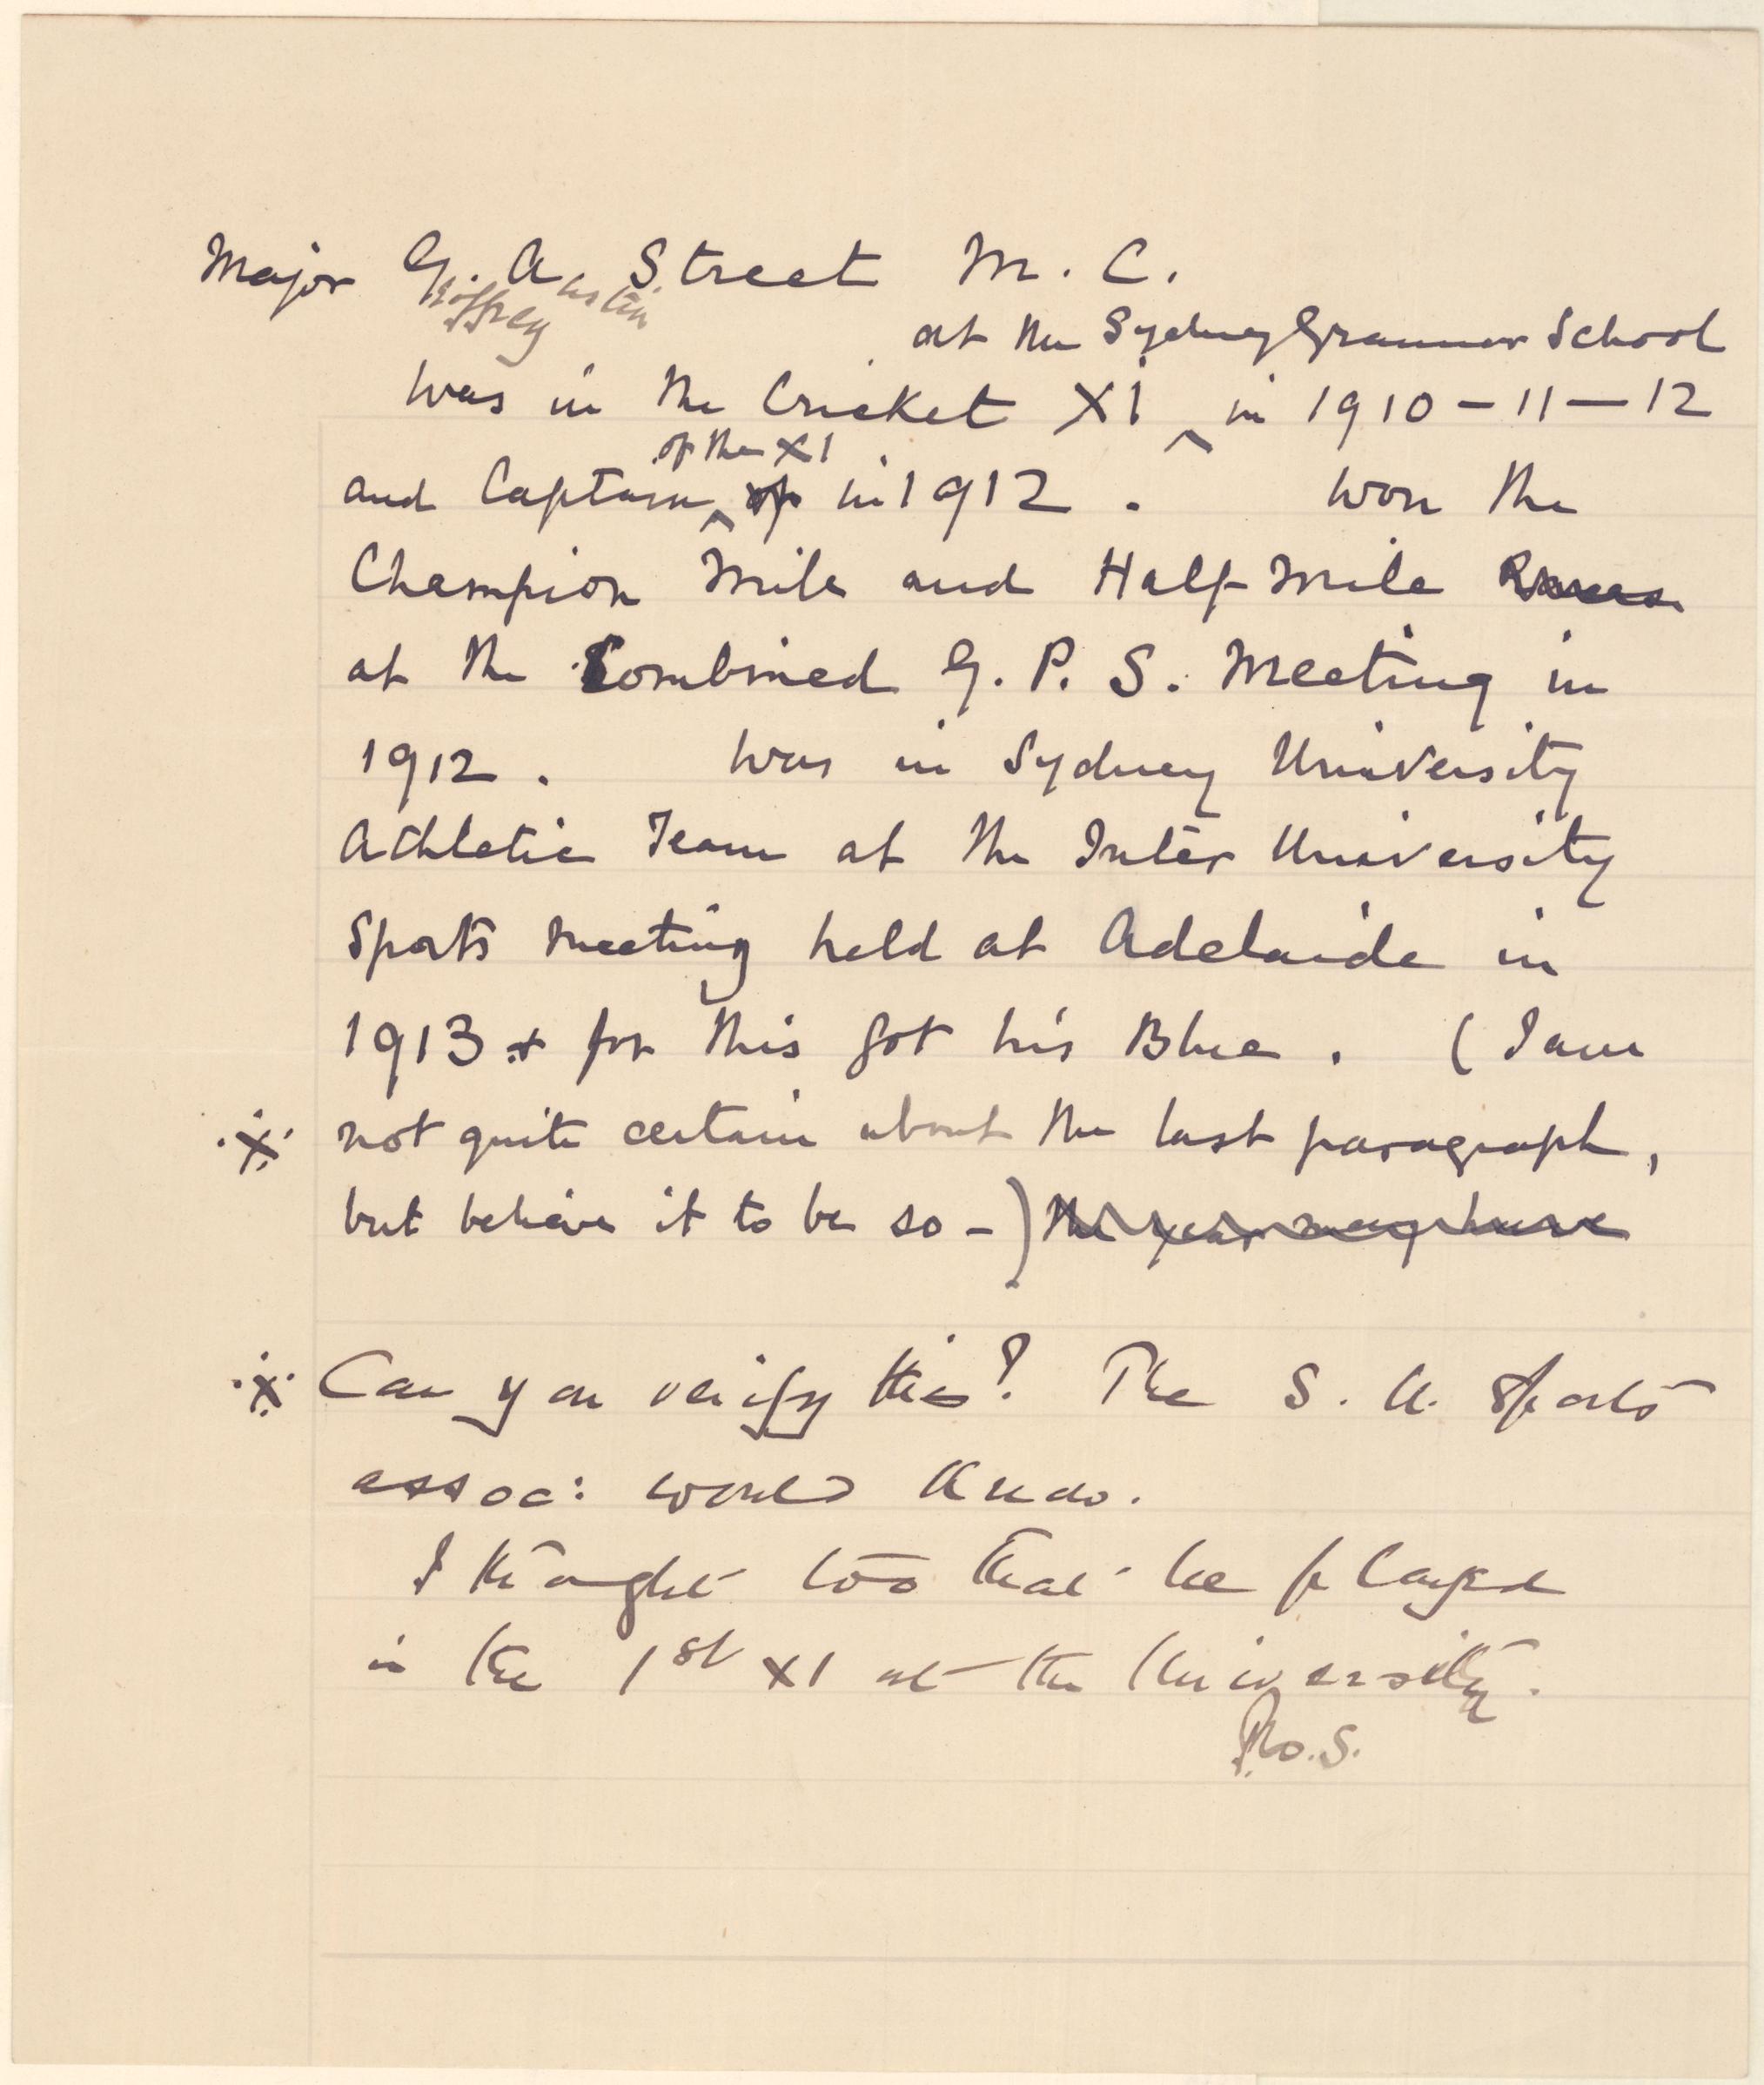 Major G. A. Street M. C.
Geoffrey Austin
at the Sydney Grammar School
Was in the Cricket XI ^ in 1910-11-12
of the XI
and Captain ^ of in 1912. Won the
Champion Mile and Half Mile Races
at the Combined G. P. S. Meeting in
1912. Was in Sydney University
Athletic Team at the Inter University
Sports meeting held at Adelaide in
1913 + for this got his Blue. (I am
※ not quite certain about the last paragraph,
but believe it to be so -) The year may have
※ Can you verify this? The S. U. Sports
assoc: would know.
I thought too that he played
in the 1st XI at the University.